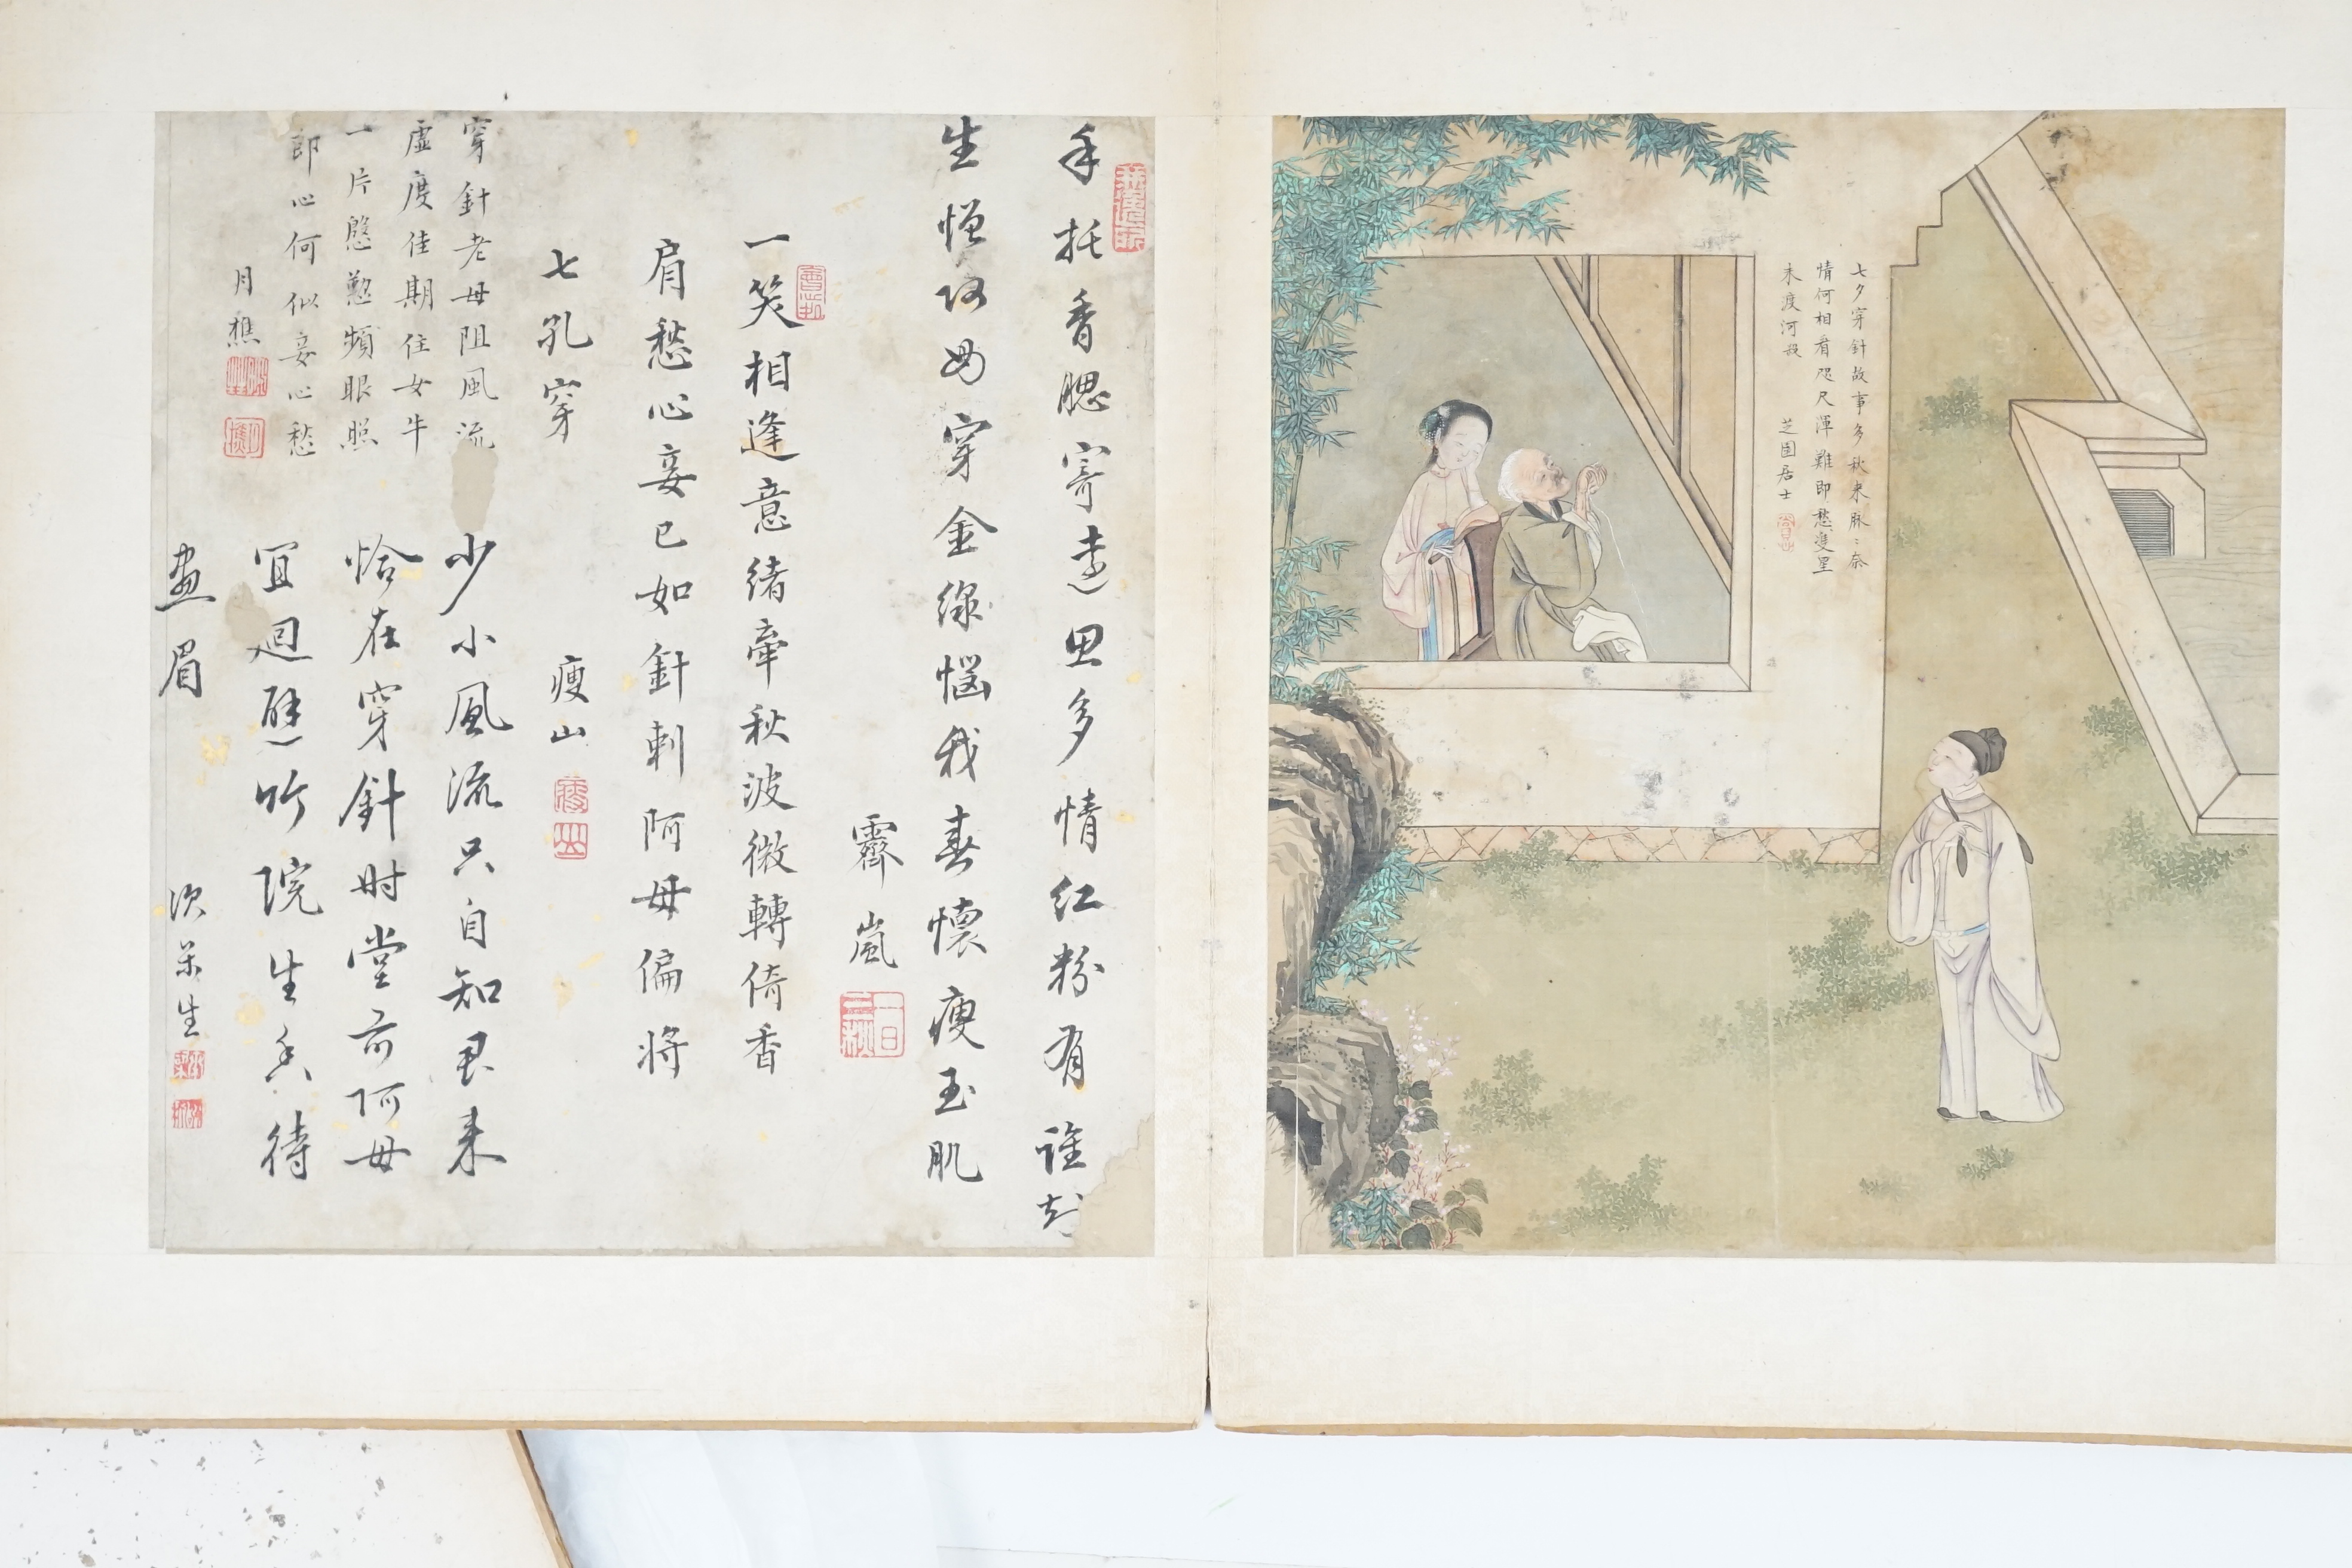 七夕穿針故事多秋来脉〻奈
情何相看咫尺渾難即愁雙星
未渡河殺
芝圃居士
手托香腮寄遠思多情紅粉有誰
生憎阿母穿金線惱我春懷瘦玉肌
霽嵐
一日三秋
一笑相逢意緒牽秋波微轉倚香
肩愁心妾已如針刺阿母偏將
七孔穿
瘦山
穿針老母阻風流
虛度佳期住女牛
一片慇懃頻眼照
郎心何似妾心愁
月樵
少小風流只自知君来
恰在穿針时堂前阿母
宜迴避竹院生香待
畫眉
次葉生